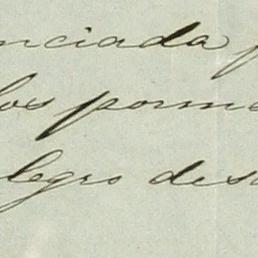 nciada p
los porme
legro des